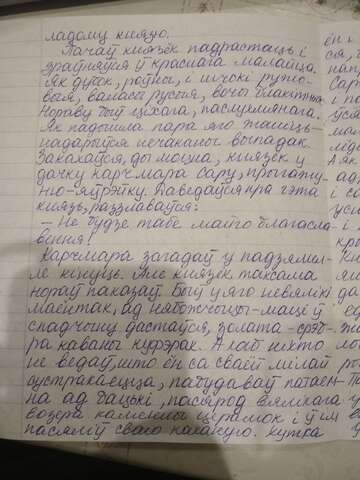 ладому князю.
Пачаў князёк падрастаць і
зраўняўся ў краснага малайца.
Як дубок, роўны, і шчокі ружо-
выя, валасы русыя, вочы блакітныя.
Нораву быў ціхага, паслухмянага.
Як падышла пара яго жаніць-
надарыўся нечаканы выпадак.
Закахаўся, ды моцна, князёк у
дачку карчмара Сару, прыгажу-
ню-яўрэйку. Даведаўся пра гэта
князь, раззлаваўся:
- Не будзе табе майго благасла-
вення!
Карчмара загадаў у падзямел-
ле кінуць. Але князёк таксама
нораў паказаў. Быў у яго невялікі
маёнтак, ад нябожчыцы-маці ў
спадчыну дастаўся, золата-срэб-
ра каваны куфэрак. А каб ніхто
не ведаў, што ён са сваёй мілай
сустракаецца, пабудаваў патаем-
на ад бацькі, пасярод вялікага
возера каменны церамок і ў ім
пасяліў сваю каханую. Хутка